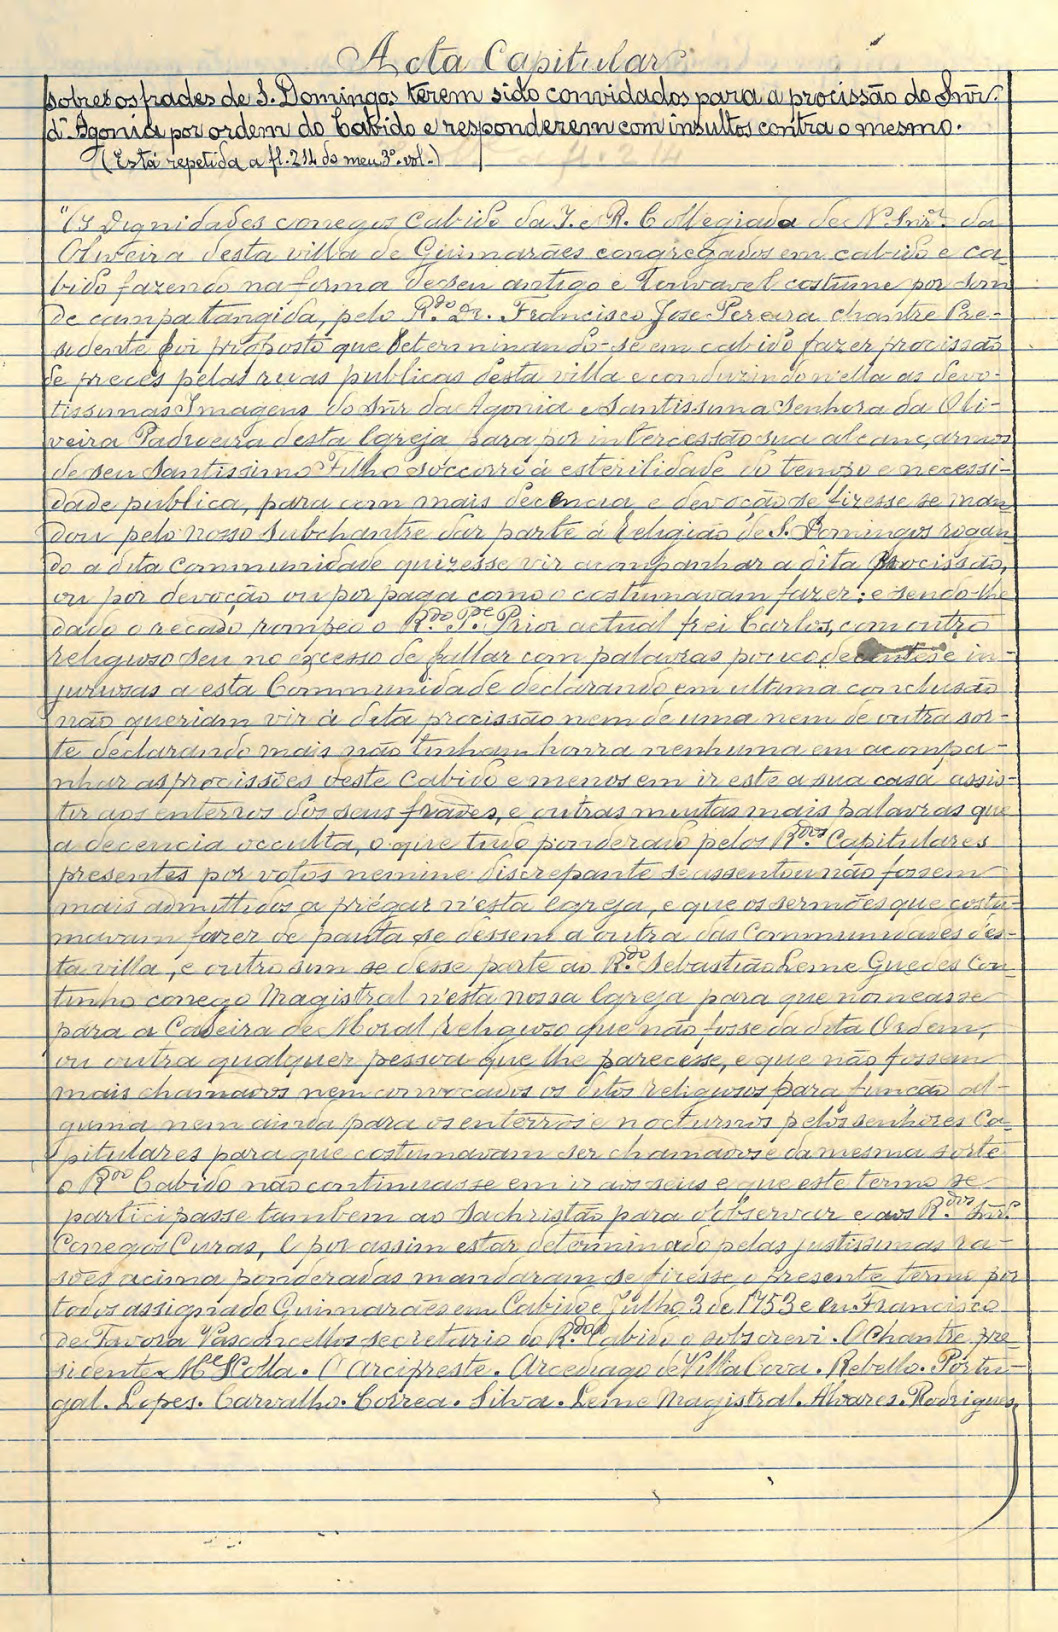 Acta Capitular
sobre os frades de S. Domingos terem sido convidados para a procissão do Snr.
d'Agonia por ordem do Cabido e responderem com insultos contra o mesmo.
(Está repetida a fl. 214 do meu 3º vol.)
"Os Dignidades conegos Cabido da I. e R. Collegiada de N. Snrª da
Oliveira desta villa de Guimarães congregados em cabido e ca-
bido fazendo na forma de seu antigo e louvavel costume por som
de campa tangida, pelo R.do Dr. Francisco Jose Pereira chantre Pre-
sidente foi proposto que determinando-se em cabido fazer procissão
de preces pelas ruas publicas desta villa e conduzindo n'ella as devo-
tissimas Imagens do Snr da Agonia e Santissima Senhora da Oli-
veira Padroeira desta Igreja para por intercessão sua alcançarmos
de seu Santissimo Filho soccorro á esterilidade do tempo e necessi-
dade publica, para com mais decencia e devoção se fizesse se man-
dou pelo nosso Subchantre dar parte á Religião de S. Domingos rogan-
do a dita Communidade quizesse vir acompanhar a dita Procissão,
ou por devoção ou por paga como o costumavam fazer; e sendo-lhe
dado o recado rompeo o R.do P.e Prior actual frei Carlos, com outro
religioso seu no excesso de fallar com palavras pouco decentes e in-
juriosas a esta Communidade declarando em ultima conclusão
não queriam vir á dita procissão nem de uma nem de outra sor-
te declarando mais não tinham honra nenhuma em acompa-
nhar as procissões deste Cabido e menos em ir este a sua casa assis-
tir aos enterros dos seus frades, e outras muitas mais palavras que
a decencia occulta, o que tudo ponderado pelos R.dos Capitulares
presentes por votos nemine discrepante se assentou não fossem
mais admittidos a prégar n'esta Igreja, e que os sermões que costu-
mavam fazer de pauta se dessem a outra das Communidades d'es-
ta villa, e outro sim se desse parte ao R.do Sebastião Leme Guedes Cou-
tinho conego Magistral n'esta nossa Igreja para que nomeasse
para a Cadeira de Moral religioso que não fosse da dita Ordem,
ou outra qualquer pessoa que lhe parecesse, e que não fossem
mais chamados nem convocados os ditos religiosos para funcão al-
guma nem ainda para os enterros e nocturnos pelos senhores Ca-
pitulares para que costumavam ser chamados e da mesma sorte
o R.do Cabido não continuasse em ir aos seus e que este termo se
participasse tambem ao Sachristão para o observar e aos R.dos Snr.s
Conegos Curas, e por assim estar determinado pelas justissimas ra-
sões acima ponderadas mandaram se fizesse o presente termo por
todos assignado Guimarães em Cabido e Julho 3 de 1753 e eu Francisco
de Tavora Vasconcellos secretario do R.do Cabido o subscrevi. O Chantre pre-
sidente M.el Cotta. O Arcipreste. Arcediago de Villa Cova. Rebello. Portu-
gal. Lopes. Carvalho. Correa. Silva. Leme Magistral. Alvares. Rodrigues.